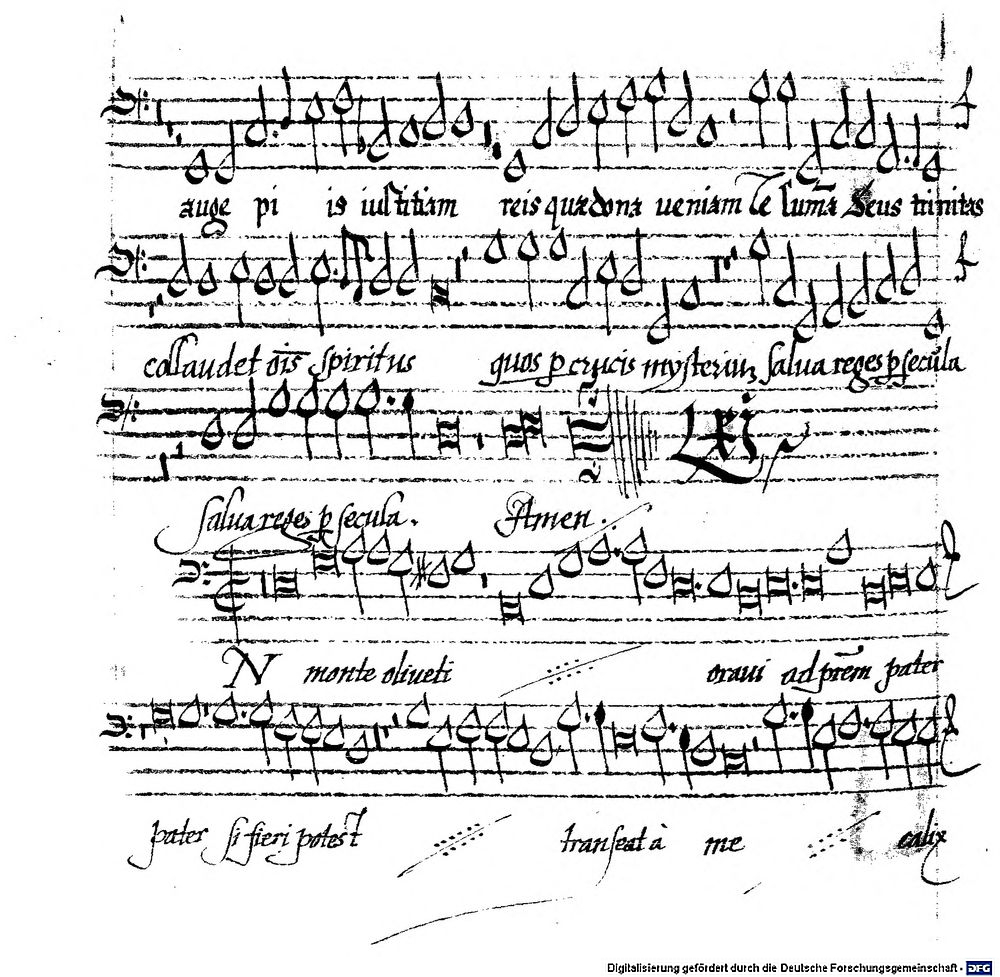 auge pi is iustitiam reis quæ dona ueniam Te sum̄a Deus trinitas
collaudet oīs spiritus quos p crucis mysterium salua reges p secula
salua reges p secula. Amen.
LXI
N monte oliueti oraui ad prēm pater
pater si fieri potest transeat à me calix
Digitalisierung gefördert durch die Deutsche Forschungsgemeinschaft - DFG